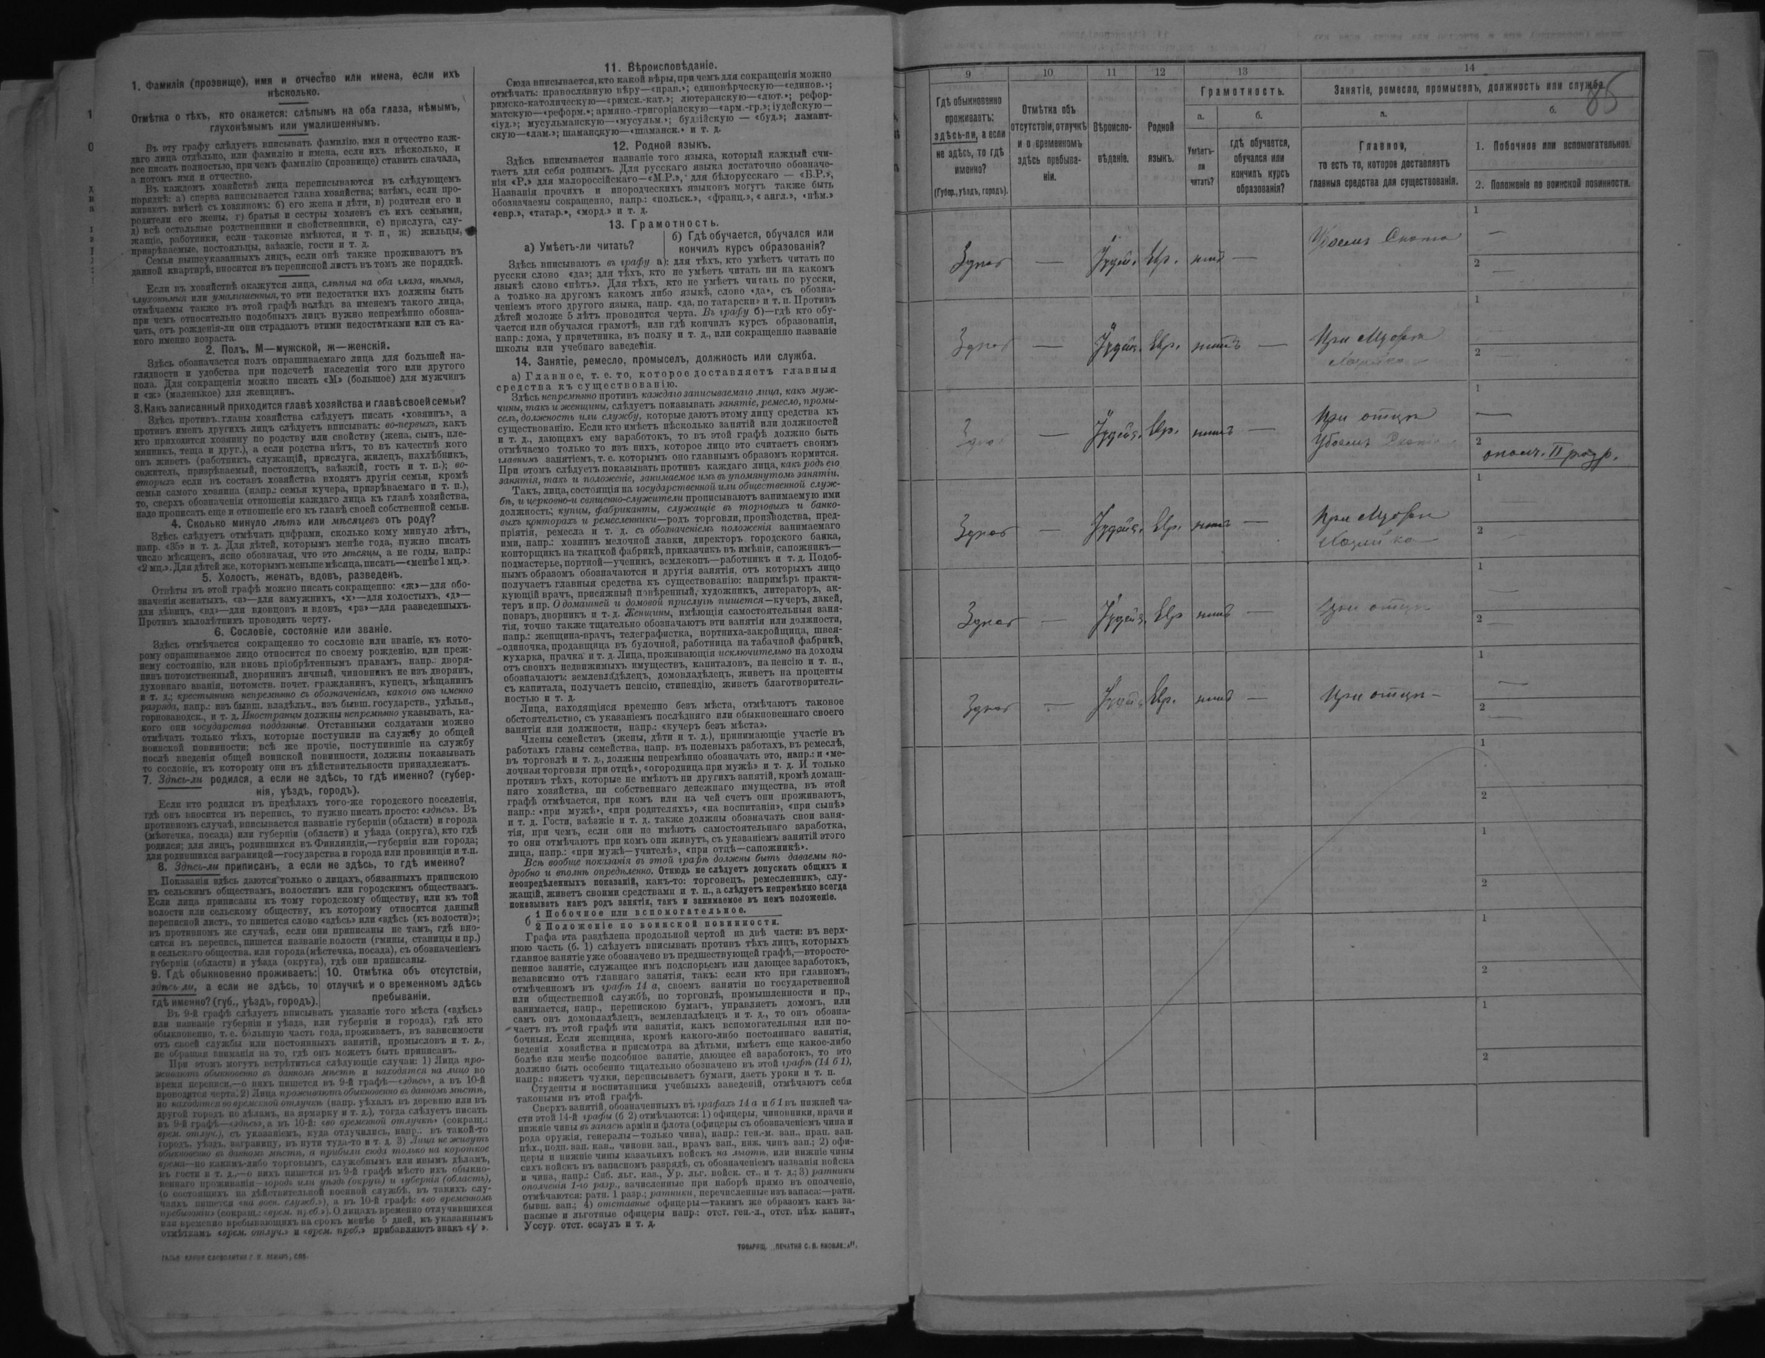 1. Фамилія (прозвище), имя и отчество или имена, если ихъ
нѣсколько.
Отмѣтка о тѣхъ, кто окажется: слѣпымъ на оба глаза, нѣмымъ,
глухонѣмымъ или умалишеннымъ.
Въ эту графу слѣдуетъ вписывать фамилію, имя и отчество каж-
даго лица отдѣльно, или фамилію и имена, если ихъ нѣсколько, и
все писать полностью, при чемъ фамилію (прозвище) ставить сначала,
а потомъ имя и отчество.
Въ каждомъ хозяйствѣ лица переписываются въ слѣдующемъ
порядкѣ: а) сперва записывается глава хозяйства; затѣмъ, если про-
живаютъ вмѣстѣ съ хозяиномъ: б) его жена и дѣти, в) родители его и
родители его жены, г) братья и сестры хозяевъ съ ихъ семьями,
д) всѣ остальные родственники и свойственники, е) прислуга, слу-
жащіе, работники, если таковые имѣются, и т. п., ж) жильцы,
призрѣваемые, постояльцы, заѣзжіе, гости и т. д.
Семьи вышеуказанныхъ лицъ, если онѣ также проживаютъ въ
данной квартирѣ, вносятся въ переписной листъ въ томъ же порядкѣ.
Если въ хозяйствѣ окажутся лица, слѣпыя на оба глаза, нѣмыя,
глухонѣмыя или умалишенныя, то эти недостатки ихъ должны быть
отмѣчаемы также въ этой графѣ вслѣдъ за именемъ такого лица,
при чемъ относительно подобныхъ лицъ нужно непремѣнно обозна-
чать, отъ рожденія-ли они страдаютъ этими недостатками или съ ка-
кого именно возраста.
2. Полъ. М—мужской, ж—женскій.
Здѣсь обозначается полъ опрашиваемаго лица для большей на-
глядности и удобства при подсчетѣ населенія того или другого
пола. Для сокращенія можно писать «М» (большое) для мужчинъ
и «ж» (маленькое) для женщинъ.
3. Какъ записанный приходится главѣ хозяйства и главѣ своей семьи?
Здѣсь противъ главы хозяйства слѣдуетъ писать «хозяинъ», а
противъ именъ другихъ лицъ слѣдуетъ вписывать: во-первыхъ, какъ
кто приходится хозяину по родству или свойству (жена, сынъ, пле-
мянникъ, теща и друг.), а если родства нѣтъ, то въ качествѣ кого
онъ живетъ (работникъ, служащій, прислуга, жилецъ, нахлѣбникъ,
сожитель, призрѣваемый, постоялецъ, заѣзжій, гость и т. п.); во-
вторыхъ если въ составъ хозяйства входятъ другія семьи, кромѣ
семьи самого хозяина (напр.: семья кучера, призрѣваемаго и т. п.),
то, сверхъ обозначенія отношенія каждаго лица къ главѣ хозяйства,
надо прописать еще и отношеніе его къ главѣ своей собственной семьи.
4. Сколько минуло лѣтъ или мѣсяцевъ отъ роду?
Здѣсь слѣдуетъ отмѣчать цифрами, сколько кому минуло лѣтъ,
напр. «35» и т. д. Для дѣтей, которымъ менѣе года, нужно писать
число мѣсяцевъ, ясно обозначая, что это мѣсяцы, а не годы, напр.:
«2 мц.». Для дѣтей же, которымъ меньше мѣсяца, писать—«менѣе 1 мц.».
5. Холостъ, женатъ, вдовъ, разведенъ.
Отвѣты въ этой графѣ можно писать сокращенно: «ж»—для обо-
значенія женатыхъ, «з»—для замужнихъ, «х»—для холостыхъ, «д»—
для дѣвицъ, «вд»—для вдовцовъ и вдовъ, «рз»—для разведенныхъ.
Противъ малолѣтнихъ проводить черту.
6. Сословіе, состояніе или званіе.
Здѣсь отмѣчается сокращенно то сословіе или званіе, къ кото-
рому опрашиваемое лицо относится по своему рожденію, или преж-
нему состоянію, или вновь пріобрѣтеннымъ правамъ, напр.: дворя-
нинъ потомственный, дворянинъ личный, чиновникъ не изъ дворянъ,
духовнаго званія, потомств. почет. гражданинъ, купецъ, мѣщанинъ
и т. д.; крестьянинъ непремѣнно съ обозначеніемъ, какого онъ именно
разряда, напр.: изъ бывш. владѣльч., изъ бывш. государств., удѣльн.,
горнозаводск., и т. д. Иностранцы должны непремѣнно указывать, ка-
кого они государства подданные. Отставными солдатами можно
отмѣчать только тѣхъ, которые поступили на службу до общей
воинской повинности; всѣ же прочіе, поступившіе на службу
послѣ введенія общей воинской повинности, должны показывать
то сословіе, къ которому они въ дѣйствительности принадлежатъ.
7. Здѣсь-ли родился, а если не здѣсь, то гдѣ именно? (губер-
нія, уѣздъ, городъ).
Если кто родился въ предѣлахъ того-же городского поселенія,
гдѣ онъ вносится въ перепись, то нужно писать просто: «здѣсь». Въ
противномъ случаѣ, вписывается названіе губерніи (области) и города
(мѣстечка, посада) или губерніи (области) и уѣзда (округа), кто гдѣ
родился; для лицъ, родившихся въ Финляндіи,—губерніи или города;
для родившихся заграницей—государства и города или провинціи и т.п.
8. Здѣсь-ли приписанъ, а если не здѣсь, то гдѣ именно?
Показанія здѣсь даются только о лицахъ, обязанныхъ припискою
къ сельскимъ обществамъ, волостямъ или городскимъ обществамъ.
Если лица приписаны къ тому городскому обществу, или къ той
волости или сельскому обществу, къ которому относится данный
переписной листъ, то пишется слово «здѣсь» или «здѣсь (къ волости)»;
въ противномъ же случаѣ, если они приписаны не тамъ, гдѣ вно-
сятся въ перепись, пишется названіе волости (гмины, станицы и пр.)
и сельскаго общества, или города (мѣстечка, посада), съ обозначеніемъ
губерніи (области) и уѣзда (округа), гдѣ они приписаны.
9. Гдѣ обыкновенно проживаетъ:
здѣсь ли, а если не здѣсь, то
гдѣ именно? (губ., уѣздъ, городъ).
10. Отмѣтка объ отсутствіи,
отлучкѣ и о временномъ здѣсь
пребываніи.
Въ 9-й графѣ слѣдуетъ вписывать указаніе того мѣста («здѣсь»
или названіе губерніи и уѣзда, или губерніи и города), гдѣ кто
обыкновенно, т. е. большую часть года, проживаетъ, въ зависимости
отъ своей службы или постоянныхъ занятій, промысловъ и т. д.,
не обращая вниманія на то, гдѣ онъ можетъ быть приписанъ.
При этомъ могутъ встрѣтиться слѣдующіе случаи: 1) Лица про-
живаютъ обыкновенно въ данномъ мѣстѣ и находятся на лицо во
время переписи,—о нихъ пишется въ 9-й графѣ—«здѣсь», а въ 10-й
проводится черта. 2) Лица проживаютъ обыкновенно въ данномъ мѣстѣ,
но находятся во временной отлучкѣ (напр. уѣхалъ въ деревню или въ
другой городъ по дѣламъ, на ярмарку и т. д.), тогда слѣдуетъ писать
въ 9-й графѣ—«здѣсь», а въ 10-й: «во временной отлучкѣ» (сокращ.:
врем. отлуч.), съ указаніемъ, куда отлучились, напр.: въ такой-то
городъ, уѣздъ, заграницу, въ пути туда-то и т. д. 3) Лица не живутъ
обыкновенно въ данномъ мѣстѣ, а прибыли сюда только на короткое
время—по какимъ-либо торговымъ, служебнымъ или инымъ дѣламъ,
въ гости и т. д.,—о нихъ пишется въ 9-й графѣ мѣсто ихъ обыкно-
веннаго проживанія—городъ или уѣздъ (округъ) и губернія (область),
(о состоящихъ на дѣйствительной военной службѣ, въ такихъ слу-
чаяхъ пишется «на воен. службѣ»), а въ 10-й графѣ: «во временномъ
пребываніи» (сокращ.: «врем. преб.»). О лицахъ временно отлучившихся
или временно пребывающихъ на срокъ менѣе 5 дней, къ указаннымъ
отмѣткамъ «врем. отлуч.» и «врем. преб.» прибавляютъ знакъ «V».
11. Вѣроисповѣданіе.
Сюда вписывается, кто какой вѣры, при чемъ для сокращенія можно
отмѣчать: православную вѣру—«прав.»; единовѣрческую—«единов.»;
римско-католическую—«римск.-кат.»; лютеранскую—«лют.»; рефор-
матскую—«реформ.»; армяно-григоріанскую—«арм.-гр.»; іудейскую—
«іуд.»; мусульманскую—«мусульм.»; буддійскую — «буд.»; ламант-
скую—«лам.»; шаманскую—«шаманск.» и т. д.
12. Родной языкъ.
Здѣсь вписывается названіе того языка, который каждый счи-
таетъ для себя роднымъ. Для русскаго языка достаточно обозначе-
нія «Р.» для малороссійскаго—«М.Р.», для бѣлорусскаго — «Б.Р.»,
Названія прочихъ и инородческихъ языковъ могутъ также быть
обозначаемы сокращенно, напр.: «польск.», «франц.», «англ.», «нѣм.»
«евр.», «татар.», «морд.» и т. д.
13. Грамотность.
а) Умѣетъ-ли читать?
б) Гдѣ обучается, обучался или
кончилъ курсъ образованія?
Здѣсь вписываютъ въ графу а): для тѣхъ, кто умѣетъ читать по
русски слово «да»; для тѣхъ, кто не умѣетъ читать ни на какомъ
языкѣ слово «нѣтъ». Для тѣхъ, кто не умѣетъ читать по русски,
а только на другомъ какомъ либо языкѣ, слово «да», съ обозна-
ченіемъ этого другого языка, напр. «да, по татарски» и т. п. Противъ
дѣтей моложе 5 лѣтъ проводится черта. Въ графу б)—гдѣ кто обу-
чается или обучался грамотѣ, или гдѣ кончилъ курсъ образованія,
напр.: дома, у причетника, въ полку и т. д., или сокращенно названіе
школы или учебнаго заведенія.
14. Занятіе, ремесло, промыселъ, должность или служба.
а) Главное, т. е. то, которое доставляетъ главныя
средства къ существованію.
Здѣсь непремѣнно противъ каждаго записываемаго лица, какъ муж-
чины, такъ и женщины, слѣдуетъ показывать занятіе, ремесло, промы-
селъ, должность или службу, которые даютъ этому лицу средства къ
существованію. Если кто имѣетъ нѣсколько занятій или должностей
и т. д., дающихъ ему заработокъ, то въ этой графѣ должно быть
отмѣчаемо только то изъ нихъ, которое лицо это считаетъ своимъ
главнымъ занятіемъ, т. е. которымъ оно главнымъ образомъ кормится.
При этомъ слѣдуетъ показывать противъ каждаго лица, какъ родъ его
занятія, такъ и положеніе, занимаемое имъ въ упомянутомъ занятіи.
Такъ, лица, состоящія на государственной или общественной служ-
бѣ, и церковно-и священно-служители прописываютъ занимаемую ими
должность; купцы, фабриканты, служащіе въ торговыхъ и банко-
выхъ конторахъ и ремесленники—родъ торговли, производства, пред-
пріятія, ремесла и т. д. съ обозначеніемъ положенія занимаемаго
ими, напр.: хозяинъ мелочной лавки, директоръ городского банка,
конторщикъ на ткацкой фабрикѣ, приказчикъ въ имѣніи, сапожникъ—
подмастерье, портной—ученикъ, землекопъ—работникъ и т. д. Подоб-
нымъ образомъ обозначаются и другія занятія, отъ которыхъ лицо
получаетъ главныя средства къ существованію: напримѣръ практи-
кующій врачъ, присяжный повѣренный, художникъ, литераторъ, ак-
теръ и пр. О домашней и домовой прислугѣ пишется—кучеръ, лакей,
поваръ, дворникъ и т. д. Женщины, имѣющія самостоятельныя заня-
тія, точно также тщательно обозначаютъ эти занятія или должности,
напр.: женщина-врачъ, телеграфистка, портниха-закройщица, швея-
одиночка, продавщица въ булочной, работница на табачной фабрикѣ,
кухарка, прачка и т. д. Лица, проживающія исключительно на доходы
отъ своихъ недвижимыхъ имуществъ, капиталовъ, на пенсію и т. п.,
обозначаютъ: землевладѣлецъ, домовладѣлецъ, живетъ на проценты
съ капитала, получаетъ пенсію, стипендію, живетъ благотворитель-
ностью и т. д.
Лица, находящіяся временно безъ мѣста, отмѣчаютъ таковое
обстоятельство, съ указаніемъ послѣдняго или обыкновеннаго своего
занятія или должности, напр.: «кучеръ безъ мѣста».
Члены семействъ (жены, дѣти и т. д.), принимающіе участіе въ
работахъ главы семейства, напр. въ полевыхъ работахъ, въ ремеслѣ,
въ торговлѣ и т. д., должны непремѣнно обозначать это, напр.: и «ме-
лочная торговля при отцѣ», «огородница при мужѣ» и т. д. И только
противъ тѣхъ, которые не имѣютъ ни другихъ занятій, кромѣ домаш-
няго хозяйства, ни собственнаго денежнаго имущества, въ этой
графѣ отмѣчается, при комъ или на чей счетъ они проживаютъ,
напр.: «при мужѣ», «при родителяхъ», «на воспитаніи», «при сынѣ»
и т. д. Гости, заѣзжіе и т. д. также должны обозначать свои заня-
тія, при чемъ, если они не имѣютъ самостоятельнаго заработка,
то они отмѣчаютъ при комъ они живутъ, съ указаніемъ занятій этого
лица, напр.: «при мужѣ—учителѣ», «при отцѣ—сапожникѣ».
Всѣ вообще показанія въ этой графѣ должны быть даваемы по-
дробно и вполнѣ опредѣленно. Отнюдь не слѣдуетъ допускать общихъ и
неопредѣленныхъ показаній, какъ-то: торговецъ, ремесленникъ, слу-
жащій, живетъ своими средствами и т. п., а слѣдуетъ непремѣнно всегда
показывать какъ родъ занятія, такъ и занимаемое въ немъ положеніе.
б 1 Побочное или вспомогательное.
2 Положеніе по воинской повинности.
Графа эта раздѣлена продольной чертой на двѣ части: въ верх-
нюю часть (б. 1) слѣдуетъ вписывать противъ тѣхъ лицъ, которыхъ
главное занятіе уже обозначено въ предшествующей графѣ,—второсте-
пенное занятіе, служащее имъ подспорьемъ или дающее заработокъ,
независимо отъ главнаго занятія, такъ: если кто при главномъ,
отмѣченномъ въ графѣ 14 а, своемъ занятіи по государственной
или общественной службѣ, по торговлѣ, промышленности и пр.,
занимается, напр., перепискою бумагъ, управляетъ домомъ, или
самъ онъ домовладѣлецъ, землевладѣлецъ и т. д., то онъ обозна-
чаетъ въ этой графѣ эти занятія, какъ вспомогательныя или по-
бочныя. Если женщина, кромѣ какого-либо постояннаго занятія,
веденія хозяйства и присмотра за дѣтьми, имѣетъ еще какое-либо
болѣе или менѣе подсобное занятіе, дающее ей заработокъ, то это
должно быть особенно тщательно обозначено въ этой графѣ (14 б 1),
напр.: вяжетъ чулки, переписываетъ бумаги, даетъ уроки и т. п.
Студенты и воспитанники учебныхъ заведеній, отмѣчаютъ себя
таковыми въ этой графѣ.
Сверхъ занятій, обозначенныхъ въ графахъ 14 а и б 1 въ нижней ча-
сти этой 14-й графы (б 2) отмѣчаются: 1) офицеры, чиновники, врачи и
нижніе чины въ запасѣ арміи и флота (офицеры съ обозначеніемъ чина и
рода оружія, генералы—только чина), напр.: ген.-м. зап., прап. зап.
пѣх., подп. зап. кав., чиновн. зап., врачъ зап., ниж. чинъ зап.; 2) офи-
церы и нижніе чины казачьихъ войскъ на льготѣ, или нижніе чины
сихъ войскъ въ запасномъ разрядѣ, съ обозначеніемъ названія войска
и чина, напр.: Сиб. льг. каз., Ур. льг. войск. ст., и т. д.; 3) ратники
ополченія 1-го разр., зачисленные при наборѣ прямо въ ополченіе,
отмѣчаются: ратн. 1 разр.; ратники, перечисленные изъ запаса:—ратн.
бывш. зап.; 4) отставные офицеры—такимъ же образомъ какъ за-
пасные и льготные офицеры напр.: отст. ген.-л., отст. пѣх. капит.,
Уссур. отст. есаулъ и т. д.
9 10 11 12 13 14
Гдѣ обыкновенно
проживаетъ:
здѣсь-ли, а если
не здѣсь, то гдѣ
именно?
(Губер., уѣздъ, городъ).
Отмѣтка объ
отсутствіи, отлучкѣ
и о временномъ
здѣсь пребыва-
ніи.
Вѣроиспо-
вѣданіе.
Родной
языкъ.
Грамотность.
а.
Умѣетъ-
ли
читать?
б.
гдѣ обучается,
обучался или
кончилъ курсъ
образованія?
Занятіе, ремесло, промыселъ, должность или служба.
85
а.
Главное,
то есть то, которое доставляетъ
главныя средства для существованія.
б.
1. Побочное или вспомогательное.
2. Положеніе по воинской повинности.
1
Здѣсь — Іудейс. Евр. нѣтъ — Убоемъ Скота —
2 —
1
Здѣсь — Іудейс. Евр. нѣтъ — При
2
1
Здѣсь — Іудейс. Евр. нѣтъ — При отцѣ —
Убоемъ Скота
2
ополч. II разр.
1
Здѣсь — Іудейс. Евр. нѣтъ — При
2
1
Здѣсь — Іудейс. Евр. нѣтъ — При отцѣ
2 —
1
Здѣсь — Іудейс. Евр. нѣтъ — При отцѣ — —
2 —
1
2
1
2
1
2
1
2